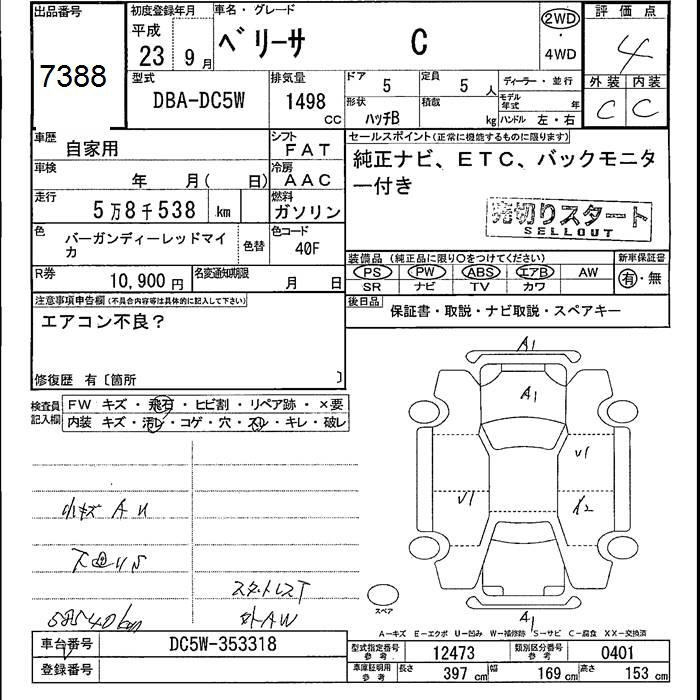 出品番号
7388
初度登録年月
平成
23 9月
車名・グレード
ベリーサ C
2WD
・
4WD
評価点
4
外装 内装
C C
型式
DBA-DC5W
排気量
1498
cc
ドア 5
定員 5 人
形状 ハッチB
積載 kg
ディーラー・並行
モデル年式 年
ハンドル 左・右
車歴 自家用
シフト FAT
車検 年 月( 日)
冷房 AAC
走行 5万8千538 km
燃料 ガソリン
色 バーガンディーレッドマイカ
色替
色コード 40F
R券 10,900円
名変通知期限 月 日
セールスポイント(正常に機能するものに限ります)
純正ナビ、ETC、バックモニタ
ー付き
売切りスタート
SELLOUT
装備品(純正品に限り○をつけてください)
新車保証書
PS PW ABS エアB AW
SR ナビ TV カワ
有・無
後日品 保証書・取説・ナビ取説・スペアキー
注意事項申告欄(不具合内容等は具体的に記入して下さい)
エアコン不良?
修復歴 有〔箇所 〕
検査員記入欄
FW キズ・飛石・ヒビ割・リペア跡・×要
内装 キズ・汚レ・コゲ・穴・スレ・キレ・破レ
小キズ A U
58540km
スタットレスT
外AW
A1
A1
V1
V1
X2
A1
スペア
A-キズ E-エクボ U-凹み W-補修跡 S-サビ C-腐食 XX-交換済
車台番号 DC5W-353318
登録番号
型式指定番号 参考 12473
類別区分番号 参考 0401
車庫証明用 参考 長さ 397 cm 幅 169 cm 高さ 153 cm